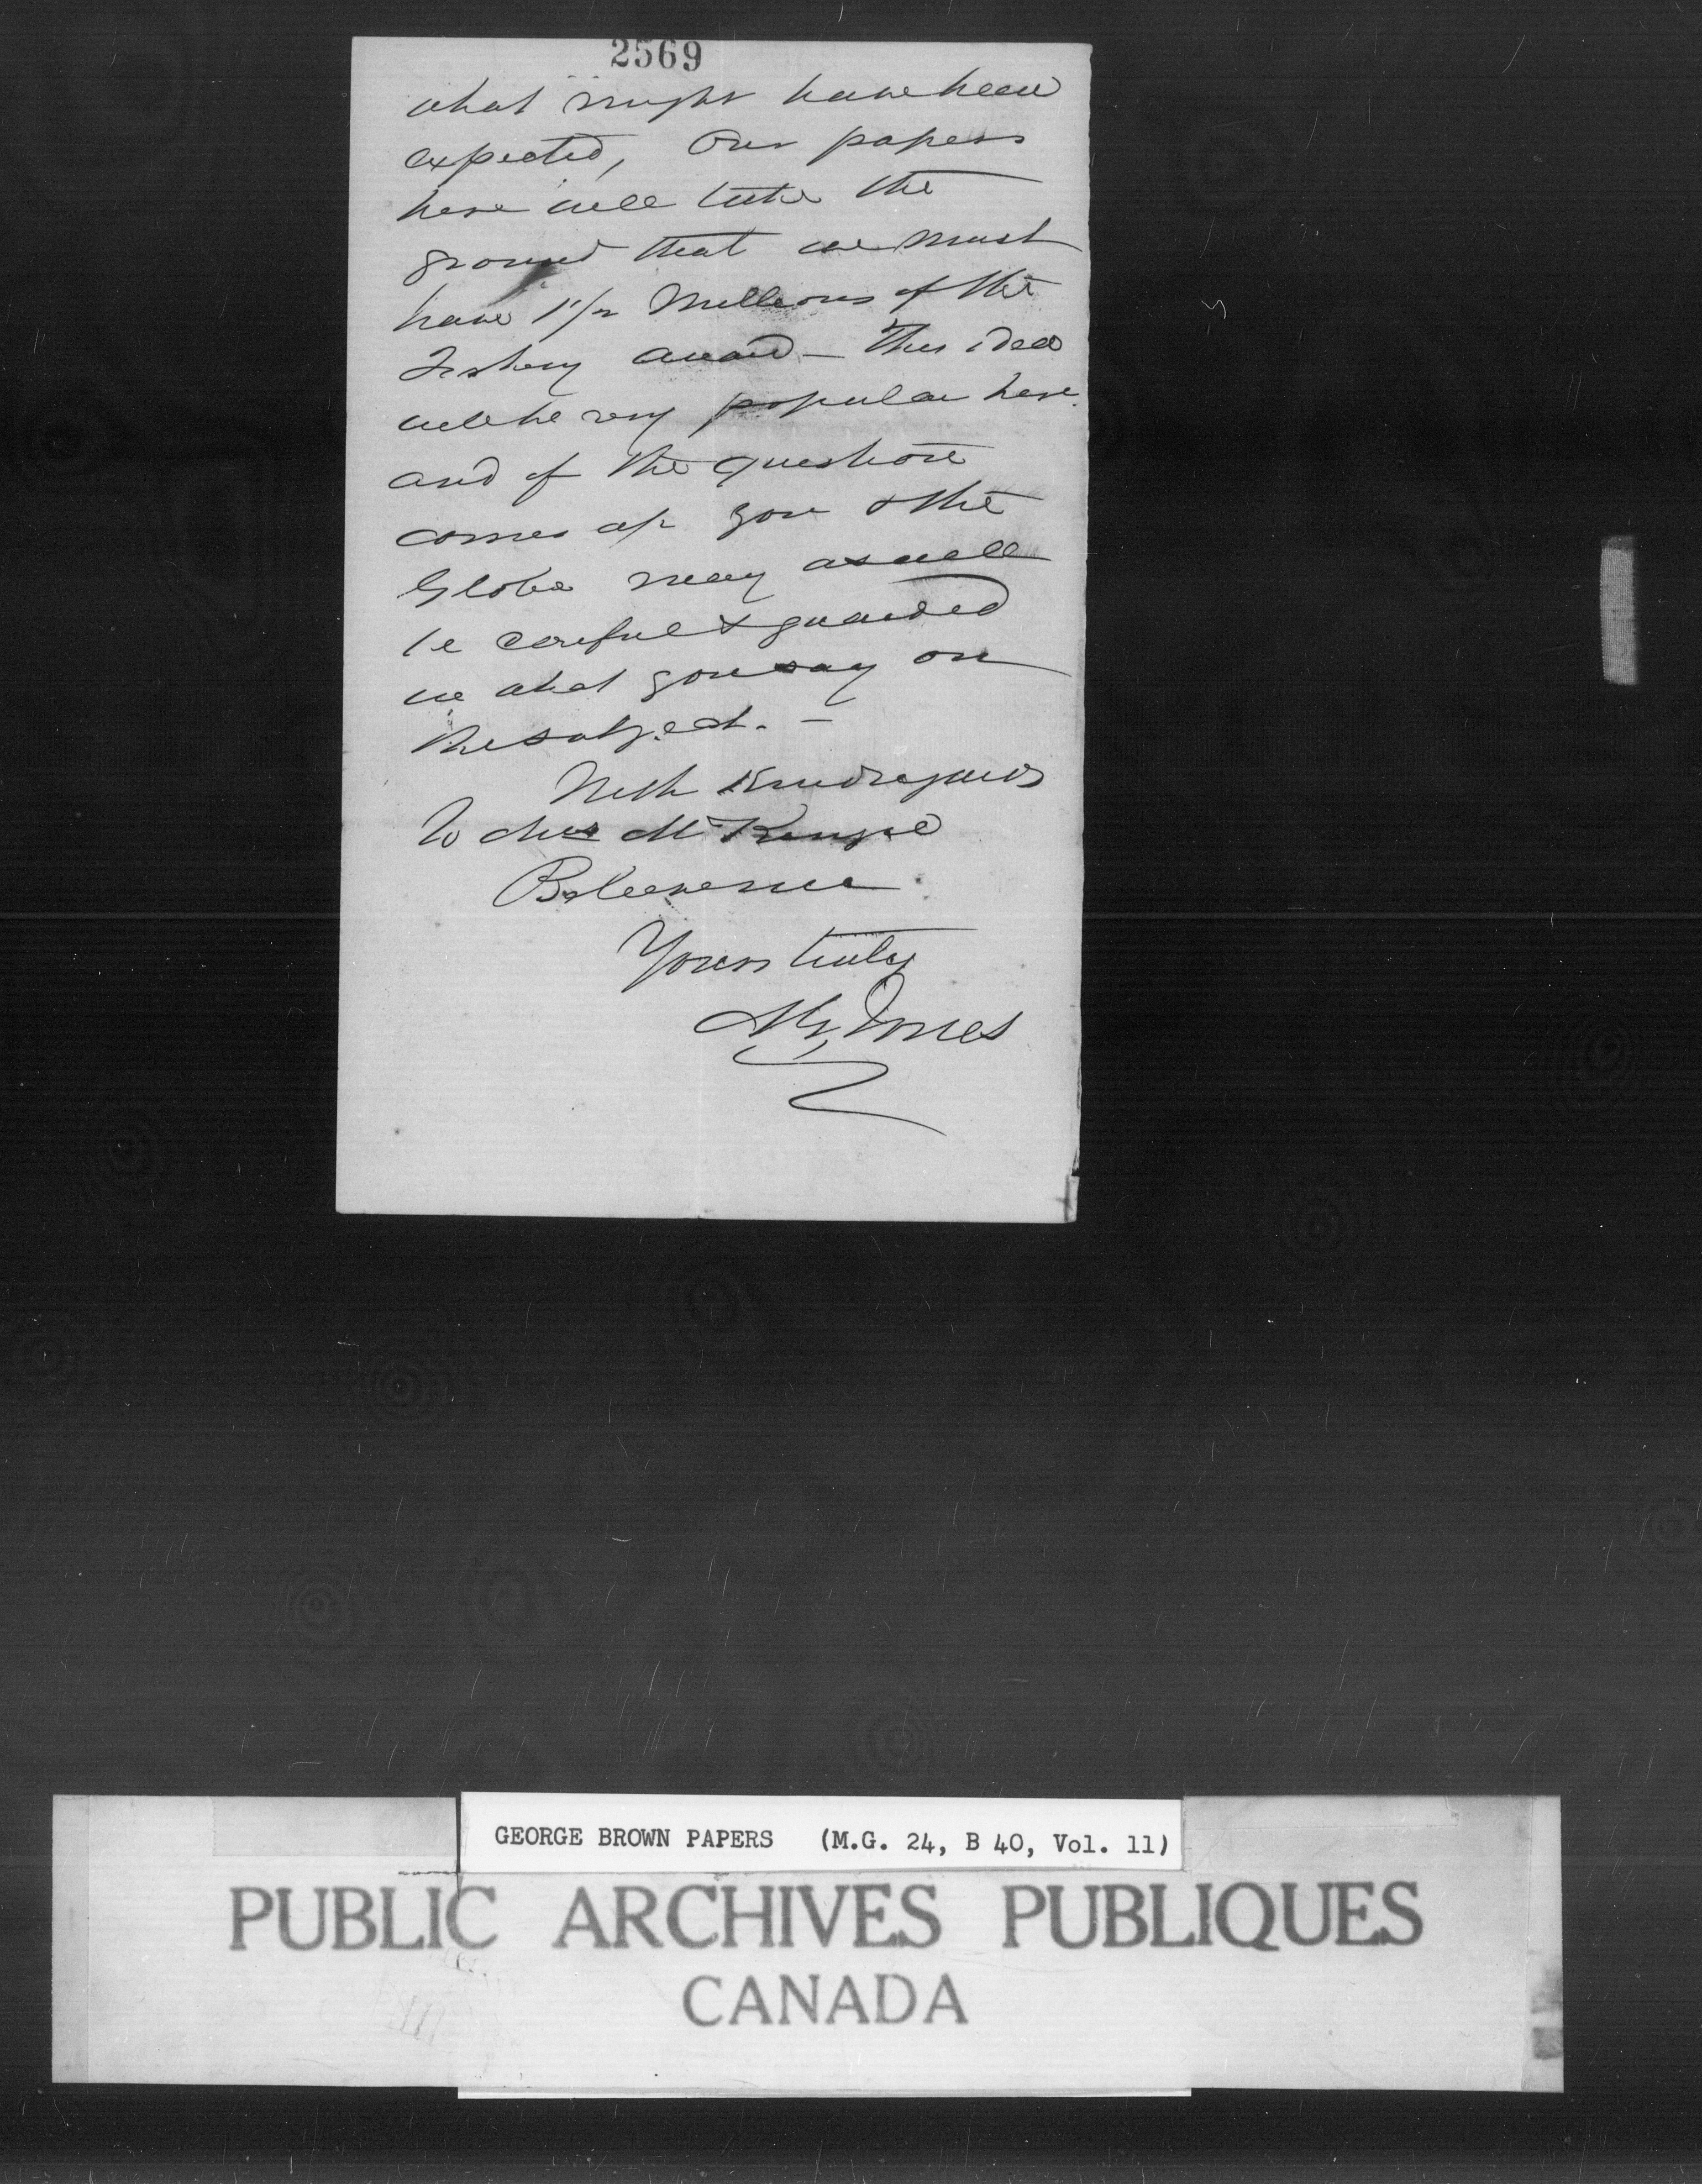 2569
what might have been
expected, Our papers
here will take the
ground that we must
have 1 1/2 Millions of the
Fishery award — This idea
will be very popular here.
and if the question
comes up you & the
Globe may as well
be careful & guarded
in what you say on
the subject. —
With Kind regards
To Mrs McKenzie
Believe me
Yours truly
A G Jones
GEORGE BROWN PAPERS (M.G. 24, B 40, Vol. 11)
PUBLIC ARCHIVES PUBLIQUES
CANADA